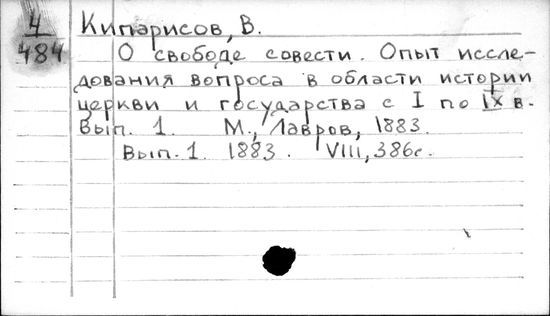 4 Кипарисов, В.
484 О свободе совести. Опыт иссле-
дования вопроса в области истории
церкви и государства с I по IX в.
Вып. 1. М., Лавров, 1883.
Вып. 1. 1883. VIII, 386с.